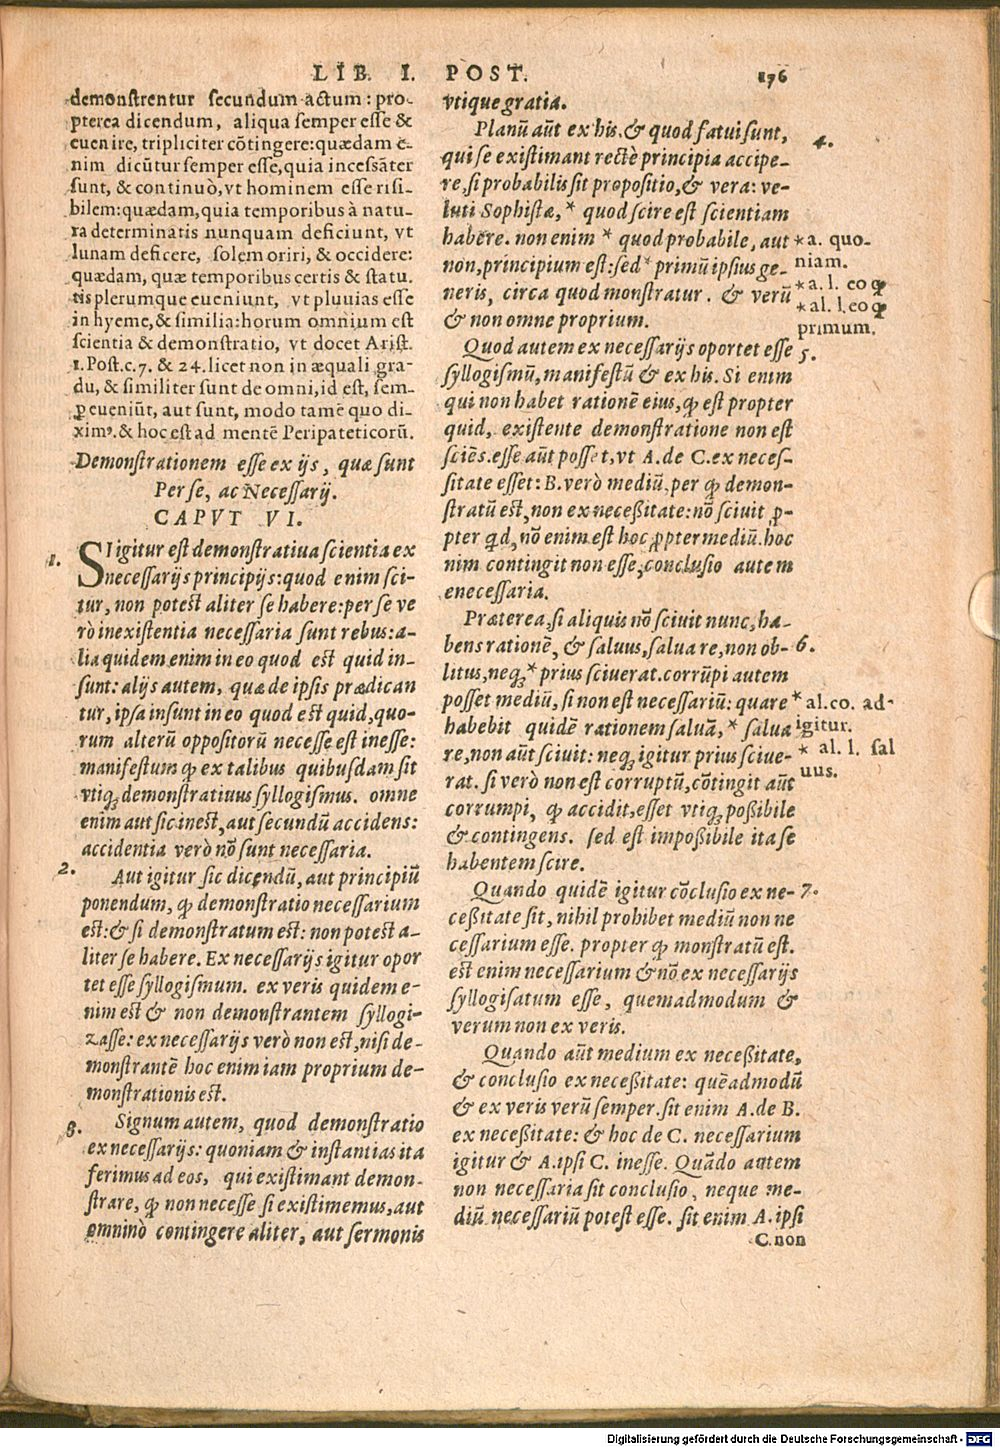 LIB. I. POST. 176
demonstrentur secundum actum: pro-
pterea dicendum, aliqua semper esse &
euenire, tripliciter cõtingere: quædam e-
nim dicũtur semper esse, quia incessãter
sunt, & continuò, vt hominem esse risi-
bilem: quædam, quia temporibus à natu-
ra determinatis nunquam deficiunt, vt
lunam deficere, solem oriri, & occidere:
quædam, quæ temporibus certis & statu.
tis plerumque eueniunt, vt pluuias esse
in hyeme, & similia: horum omnium est
scientia & demonstratio, vt docet Arist.
1. Post. c. 7. & 24. licet non in æquali gra-
du, & similiter sunt de omni, id est, sem-
ꝑ eueniũt, aut sunt, modo tamē quo di-
ximꝰ. & hoc est ad mentē Peripateticorũ.
Demonstrationem esse ex ijs, quæ sunt
Per se, ac Necessarij.
CAPVT VI.
1.
SI igitur est demonstratiua scientia ex
necessarijs principijs: quod enim sci-
tur, non potest aliter se habere: per se ve
rò inexistentia necessaria sunt rebus: a-
lia quidem enim in eo quod est quid in-
sunt: alijs autem, quæ de ipsis prædican
tur, ipsa insunt in eo quod est quid, quo-
rum alterũ oppositorũ necesse est inesse:
manifestum ꝙ ex talibus quibusdam sit
vtiqꝫ demonstratiuus syllogismus. omne
enim aut sic inest, aut secundũ accidens:
accidentia verò nõ sunt necessaria.
2.
Aut igitur sic dicendũ, aut principiũ
ponendum, ꝙ demonstratio necessarium
est: & si demonstratum est: non potest a-
liter se habere. Ex necessarijs igitur opor
tet esse syllogismum. ex veris quidem e-
nim est & non demonstrantem syllogi-
zasse: ex necessarijs verò non est, nisi de-
monstrantē hoc enim iam proprium de-
monstrationis est.
3.
Signum autem, quod demonstratio
ex necessarijs: quoniam & instantias ita
ferimus ad eos, qui existimant demon-
strare, ꝙ non necesse si existimemus, aut
omninò contingere aliter, aut sermonis
vtique gratia.
Planũ aũt ex his. & quod fatui sunt, 4.
qui se existimant rectè principia accipe-
re, si probabilis sit propositio, & vera: ve-
luti Sophistæ, * quod scire est scientiam
habere. non enim * quod probabile, aut * a. quo-
non, principium est: sed * primũ ipsius ge- niam.
neris, circa quod monstratur. & verũ * a. l. eo ꝙ
& non omne proprium. * al. l. eo ꝙ
primum.
Quod autem ex necessarijs oportet esse 5.
syllogismũ, manifestũ & ex his. Si enim
qui non habet rationē eius, ꝙ est propter
quid, existente demonstratione non est
sciēs. esse aũt posset, vt A. de C. ex neces-
sitate esset: B. verò mediũ, per ꝙ demon-
stratũ est, non ex necessitate: nõ sciuit ꝓ-
pter qd, nõ enim est hoc ꝓpter mediũ. hoc
nim contingit non esse, conclusio autem
enecessaria.
Præterea, si aliquis nõ sciuit nunc, ha-
bens rationē, & saluus, salua re, non ob- 6.
litus, neqꝫ * prius sciuerat. corrũpi autem
posset mediũ, si non est necessariũ: quare * al. co. ad-
habebit quidē rationem saluã, * salua igitur.
re, non aũt sciuit: neqꝫ igitur prius sciue- * al. l. sal
rat. si verò non est corruptũ, cõtingit aũt uus.
corrumpi, ꝙ accidit, esset vtiqꝫ possibile
& contingens. sed est impossibile ita se
habentem scire.
Quando quidē igitur cõclusio ex ne- 7.
cessitate sit, nihil prohibet mediũ non ne
cessarium esse. propter ꝙ monstratũ est.
est enim necessarium & nõ ex necessarijs
syllogisatum esse, quemadmodum &
verum non ex veris.
Quando aũt medium ex necessitate,
& conclusio ex necessitate: quēadmodũ
& ex veris verũ semper. sit enim A. de B.
ex necessitate: & hoc de C. necessarium
igitur & A. ipsi C. inesse. Quãdo autem
non necessaria sit conclusio, neque me-
diũ necessariũ potest esse. sit enim A. ipsi
C. non
Digitalisierung gefördert durch die Deutsche Forschungsgemeinschaft - DFG